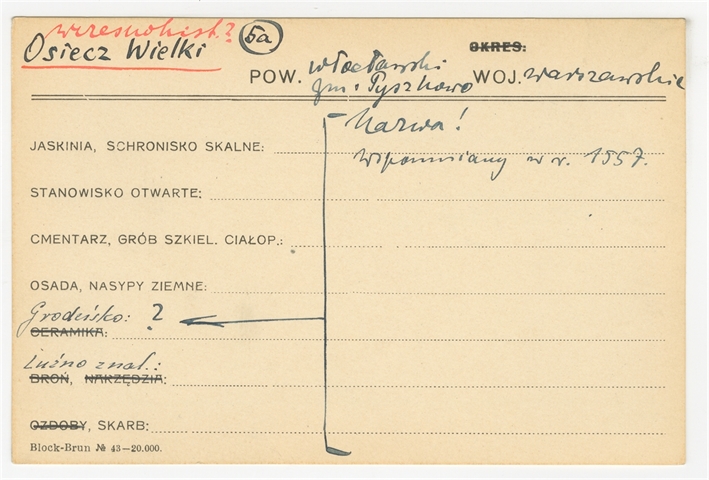 wczesnohist.?
Osiecz Wielki
5a
OKRES:
POW. włocławski WOJ. warszawskie
gm.: Pyszkowo
Nazwa!
JASKINIA, SCHRONISKO SKALNE:
Wspomniany w r. 1557.
STANOWISKO OTWARTE:
CMENTARZ, GRÓB SZKIEL. CIAŁOP.:
OSADA, NASYPY ZIEMNE:
Grodzisko: ?
CERAMIKA:
Luźno znal.:
BROŃ, NARZĘDZIA:
OZDOBY, SKARB:
Block-Brun № 43—20.000.